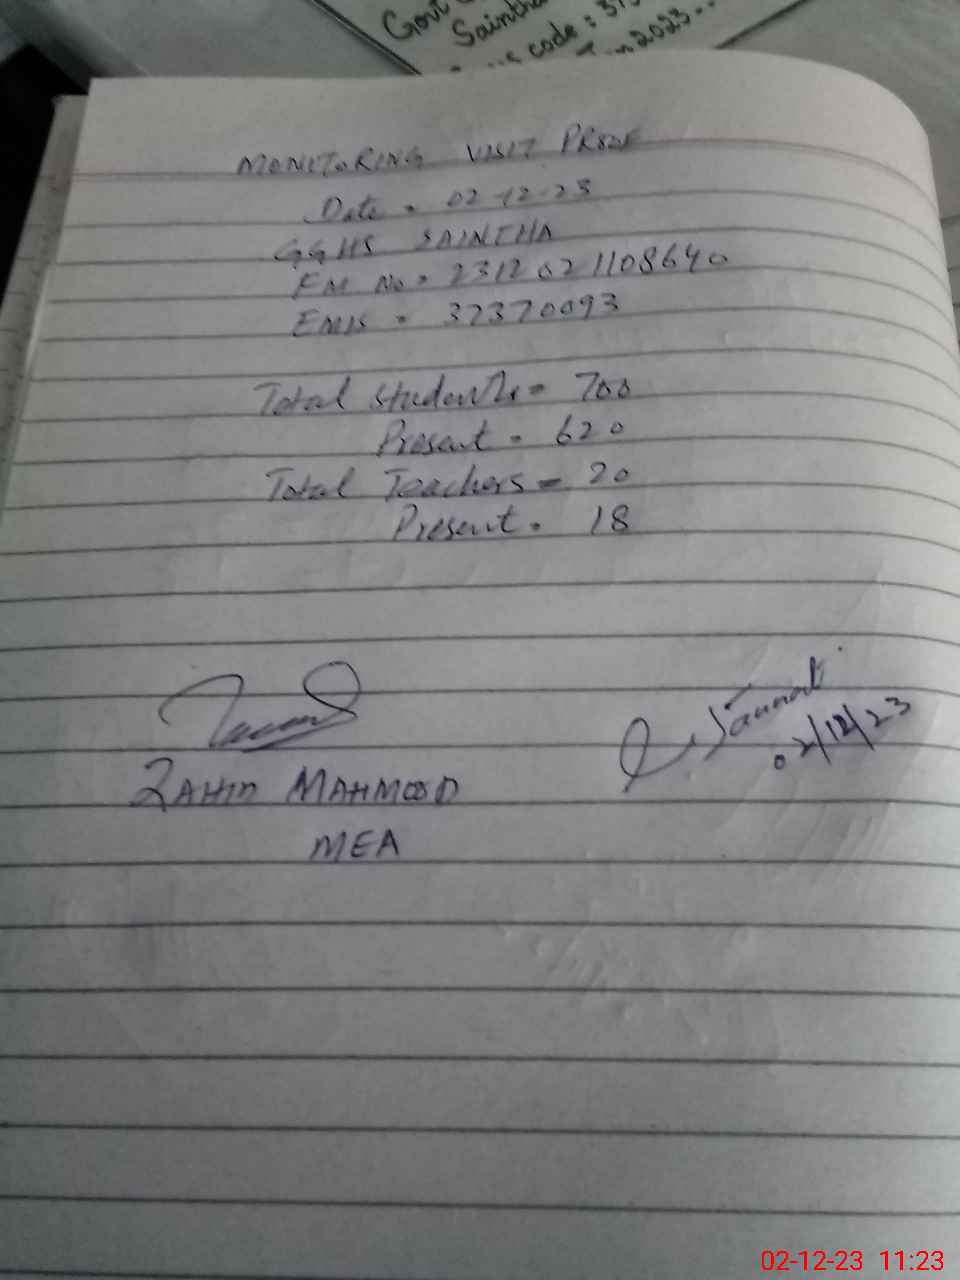 Govt
Saintha
code : 373
Jun 2023..
MONITORING VISIT PROOF
Date = 02-12-23
GGHS SAINTHA
FM No = 231202 1108640
EMIS = 37370093
Total students = 700
Present = 620
Total Teachers = 20
Present = 18
ZAHID MAHMOOD
MEA
02/12/23
02-12-23 11:23